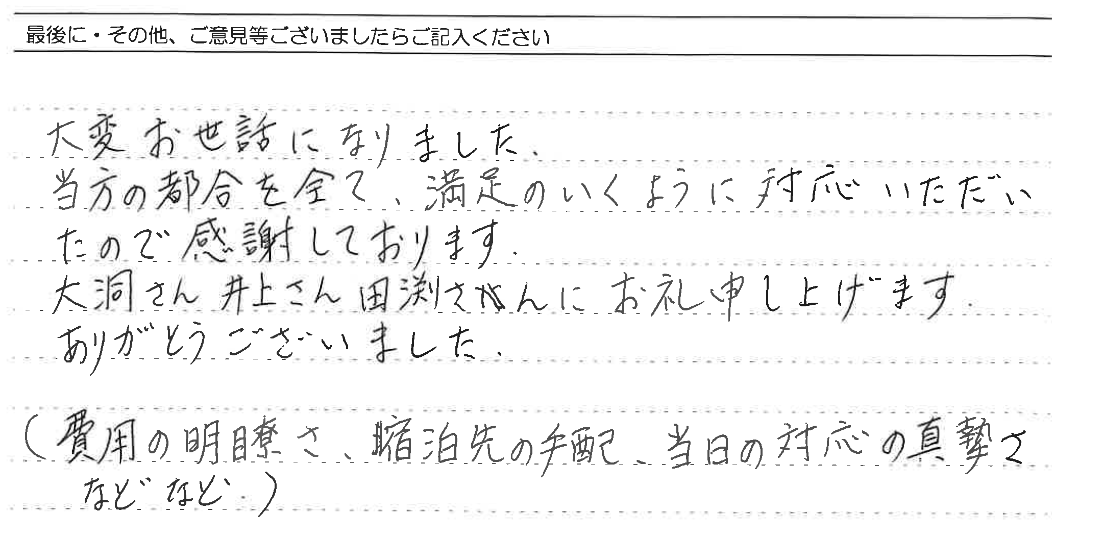 最後に・その他、ご意見等ございましたらご記入ください
大変お世話になりました.
当方の都合を全て、満足のいくように対応いただい
たので感謝しております.
大洞さん 井上さん 田渕さんにお礼申し上げます.
ありがとうございました.
(費用の明瞭さ、宿泊先の手配、当日の対応の真摯さ
などなど.)